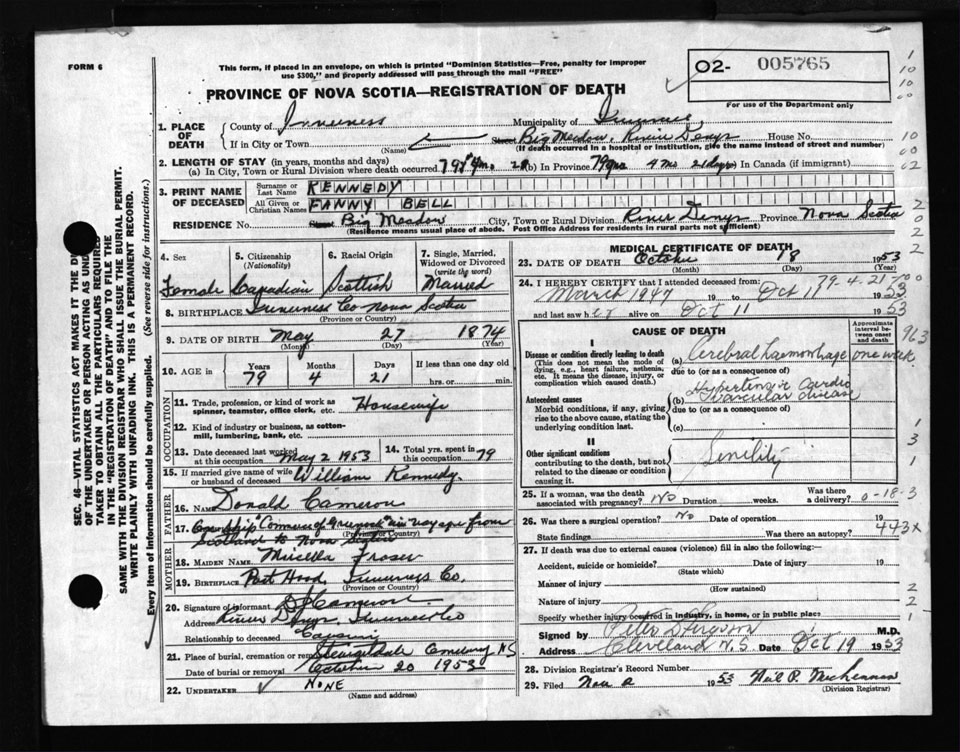 FORM 6
This form, if placed in an envelope, on which is printed "Dominion Statistics—Free, penalty for improper
use $300," and properly addressed will pass through the mail "FREE"
PROVINCE OF NOVA SCOTIA—REGISTRATION OF DEATH
02- 005765
For use of the Department only
1. PLACE OF DEATH
County of Inverness Municipality of Inverness
If in City or Town (Name) Street Big Meadow, River Denys House No.
(If death occurred in a hospital or institution, give the name instead of street and number)
2. LENGTH OF STAY (in years, months and days)
(a) In City, Town or Rural Division where death occurred 79 yrs 4 mo. 21 (b) In Province 79 yrs 4 mo 21 days (c) In Canada (if immigrant)
3. PRINT NAME OF DECEASED
Surname or Last Name KENNEDY
All Given or Christian Names FANNY BELL
RESIDENCE No. Street Big Meadow City, Town or Rural Division River Denys Province Nova Scotia
(Residence means usual place of abode. Post Office Address for residents in rural parts not sufficient)
4. Sex Female
5. Citizenship (Nationality) Canadian
6. Racial Origin Scottish
7. Single, Married, Widowed or Divorced (write the word) Married
8. BIRTHPLACE Inverness Co Nova Scotia
(Province or Country)
9. DATE OF BIRTH May 27 1874
(Month) (Day) (Year)
10. AGE in Years 79 Months 4 Days 21 If less than one day old hrs. or min.
OCCUPATION
11. Trade, profession, or kind of work as spinner, teamster, office clerk, etc. Housewife
12. Kind of industry or business, as cotton-mill, lumbering, bank, etc.
13. Date deceased last worked at this occupation May 2 1953
14. Total yrs. spent in this occupation 79
15. If married give name of wife or husband of deceased William Kennedy
FATHER
16. Name Donald Cameron
17. On ship "Commerce of Greenock" on voyage from
Scotland to Nova Scotia
(Province or Country)
MOTHER
18. MAIDEN NAME Fraser
19. BIRTHPLACE Port Hood, Inverness Co.
(Province or Country)
20. Signature of informant D Cameron
Address River Denys Inverness Co
Relationship to deceased
21. Place of burial, cremation or removal Cemetery NS
Date of burial or removal October 20 1953
22. UNDERTAKER NONE
(Name and address)
MEDICAL CERTIFICATE OF DEATH
23. DATE OF DEATH October 18 1953
(Month) (Day) (Year)
24. I HEREBY CERTIFY that I attended deceased from: 79-4-21
March 1947 19 to Oct 1953
and last saw her alive on Oct 11 1953
CAUSE OF DEATH
Approximate interval between onset and death
I
Disease or condition directly leading to death
(This does not mean the mode of dying, e.g., heart failure, asthenia, etc. It means the disease, injury, or complication which caused death.)
(a) Cerebral haemorrhage one week
due to (or as a consequence of)
Antecedent causes
Morbid conditions, if any, giving rise to the above cause, stating the underlying condition last.
(b) Hypertensive Cardio
vascular disease
due to (or as a consequence of)
(c)
II
Other significant conditions
contributing to the death, but not related to the disease or condition causing it.
Senility
25. If a woman, was the death associated with pregnancy? No Duration weeks. Was there a delivery?
26. Was there a surgical operation? No Date of operation 19
State findings Was there an autopsy?
443X
27. If death was due to external causes (violence) fill in also the following:—
Accident, suicide or homicide? Date of injury 19
(State which)
Manner of injury
(How sustained)
Nature of injury
Specify whether injury occurred in industry, in home, or in public place
Signed by M.D.
Address Cleveland N.S. Date Oct 19 1953
28. Division Registrar's Record Number
29. Filed Nov 19 53 Neil P.
(Division Registrar)
SEC. 46—VITAL STATISTICS ACT MAKES IT THE
OF THE UNDERTAKER OR PERSON ACTING AS
TAKER TO OBTAIN ALL THE PARTICULARS REQUIRED
IN THE "REGISTRATION OF DEATH" AND TO FILE THE
SAME WITH THE DIVISION REGISTRAR WHO SHALL ISSUE THE BURIAL PERMIT.
WRITE PLAINLY WITH UNFADING INK. THIS IS A PERMANENT RECORD.
Every item of information should be carefully supplied. (See reverse side for instructions.)